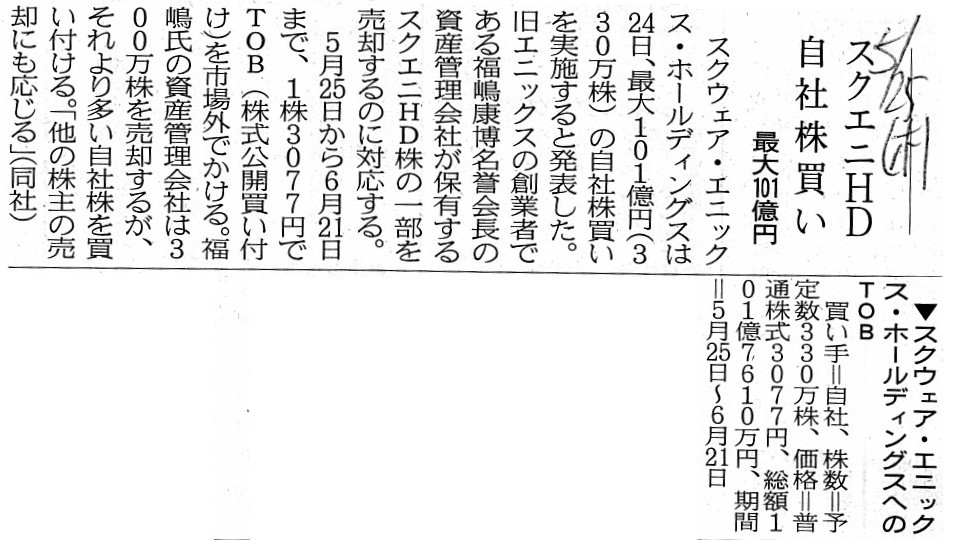 5/25
スクエニHD
自社株買い
最大101億円
スクウェア・エニック
ス・ホールディングスは
24日、最大101億円(3
30万株)の自社株買い
を実施すると発表した。
旧エニックスの創業者で
ある福嶋康博名誉会長の
資産管理会社が保有する
スクエニHD株の一部を
売却するのに対応する。
5月25日から6月21日
まで、1株3077円で
TOB(株式公開買い付
け)を市場外でかける。福
嶋氏の資産管理会社は3
00万株を売却するが、
それより多い自社株を買
い付ける。「他の株主の売
却にも応じる」(同社)
▼スクウェア・エニック
ス・ホールディングスへの
TOB
買い手=自社、株数=予
定数330万株、価格=普
通株式3077円、総額1
01億7610万円、期間
=5月25日~6月21日